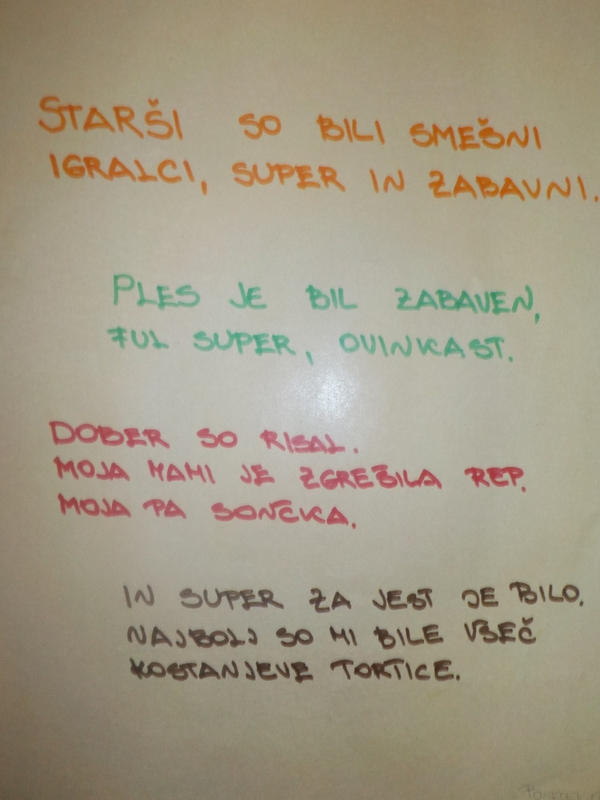 STARŠI SO BILI SMEŠNI
IGRALCI, SUPER IN ZABAVNI.
PLES JE BIL ZABAVEN,
FUL SUPER, OVINKAST.
DOBER SO RISAL.
MOJA MAMI JE ZGREŠILA REP.
MOJA PA SONČKA.
IN SUPER ZA JEST JE BILO.
NAJBOLJ SO MI BILE VŠEČ
KOSTANJEVE TORTICE.